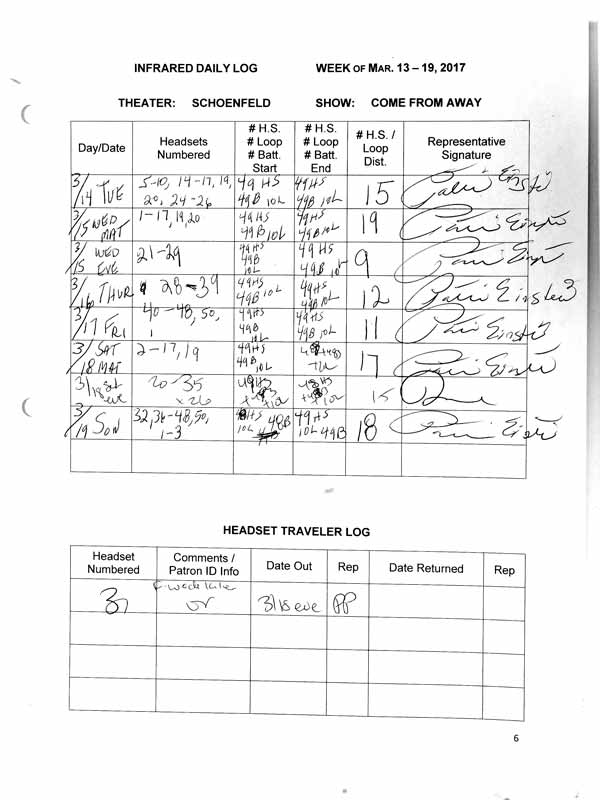 INFRARED DAILY LOG WEEK OF MAR. 13 – 19, 2017
THEATER: SCHOENFELD SHOW: COME FROM AWAY
Day/Date Headsets Numbered # H.S. # Loop # Batt. Start # H.S. # Loop # Batt. End # H.S. / Loop Dist. Representative Signature
3/14 TUE 5-10, 14-17, 19, 20, 24-26 49HS 49B 10L 49HS 49B 10L 15
3/15 WED MAT 1-17, 19, 20 49HS 49B 10L 49HS 49B 10L 19
3/15 WED EVE 21-29 49HS 49B 10L 49HS 49B 10L 9
3/16 THUR 28-39 49HS 49B 10L 49HS 49B 10L 12 Patti Einstein
3/17 FRI 40-48, 50, 1 49HS 49B 10L 49HS 49B 10L 11
3/18 SAT MAT 2-17, 19 49HS 49B 10L 17
3/18 sat eve 20-35 x26 49HS 48HS 15
3/19 SUN 32, 36-48, 50, 1-3 48HS 48B 10L 49HS 10L 49B 18
HEADSET TRAVELER LOG
Headset Numbered Comments / Patron ID Info Date Out Rep Date Returned Rep
3/18 eve PP
6